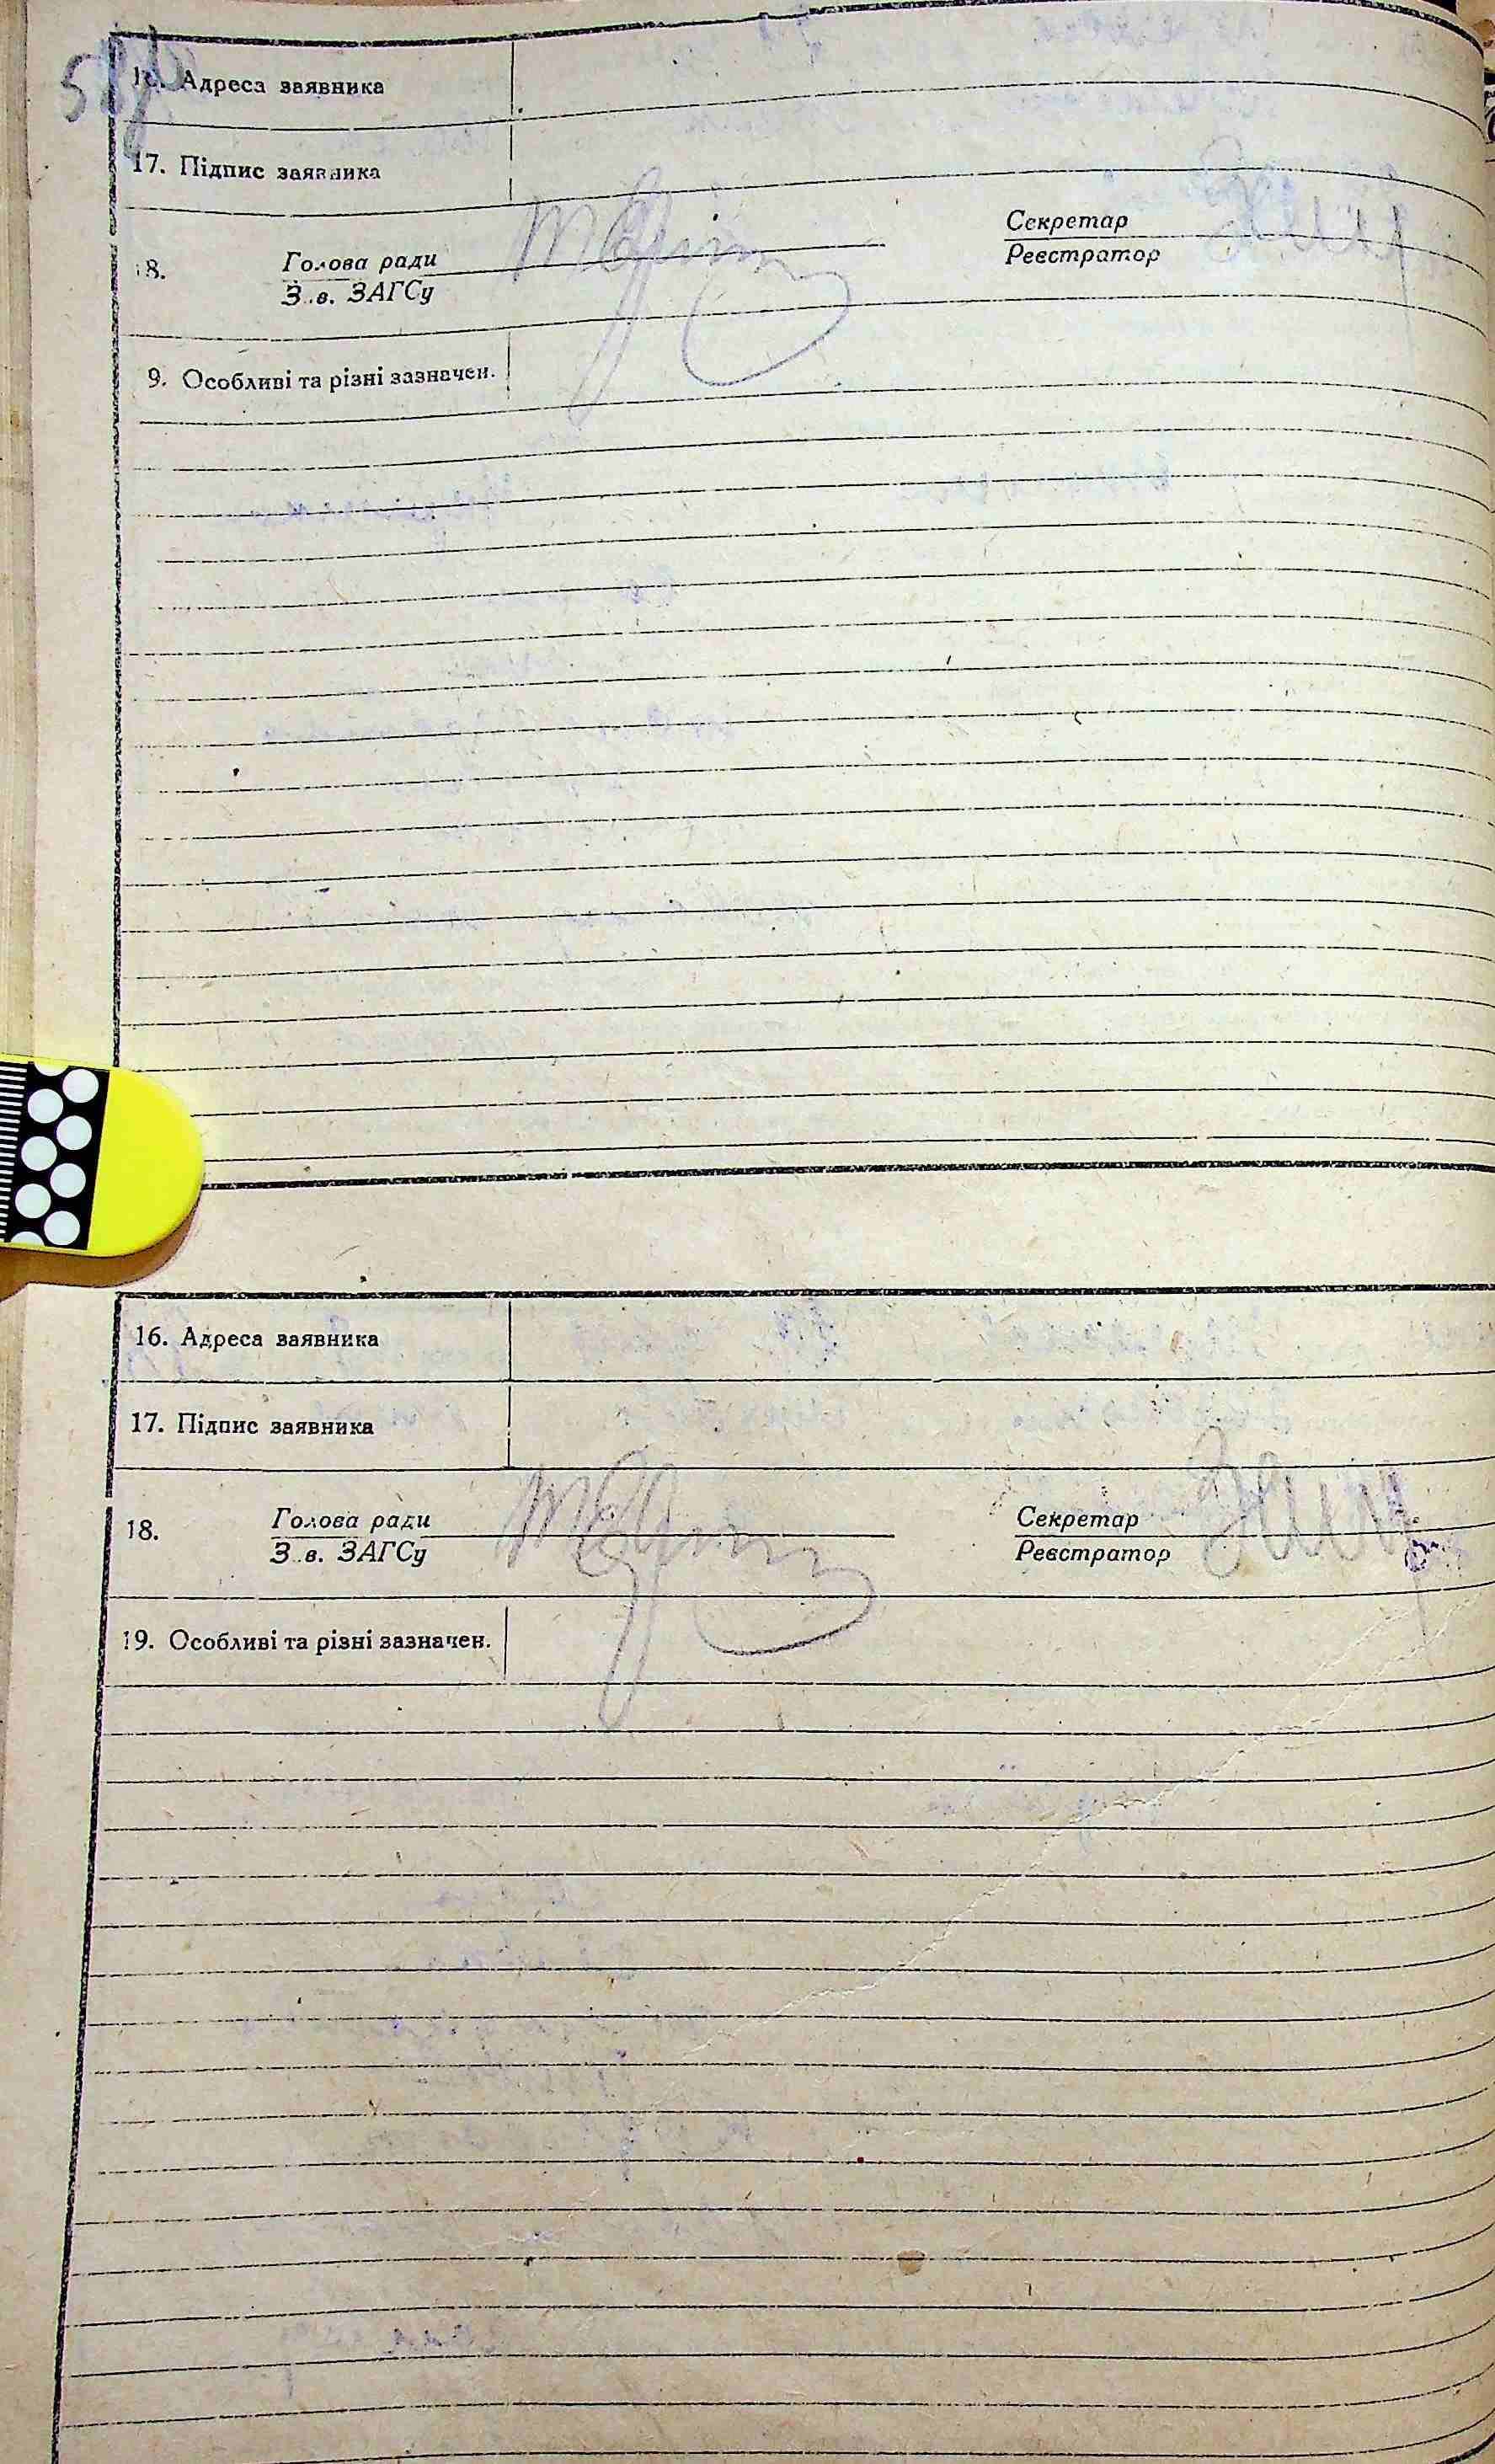 16. Адреса заявника
17. Підпис заявника
18. Голова ради
З. в. ЗАГСу
Секретар
Реєстратор
9. Особливі та різні зазначен.
16. Адреса заявника
17. Підпис заявника
18. Голова ради
З. в. ЗАГСу
Секретар
Реєстратор
19. Особливі та різні зазначен.